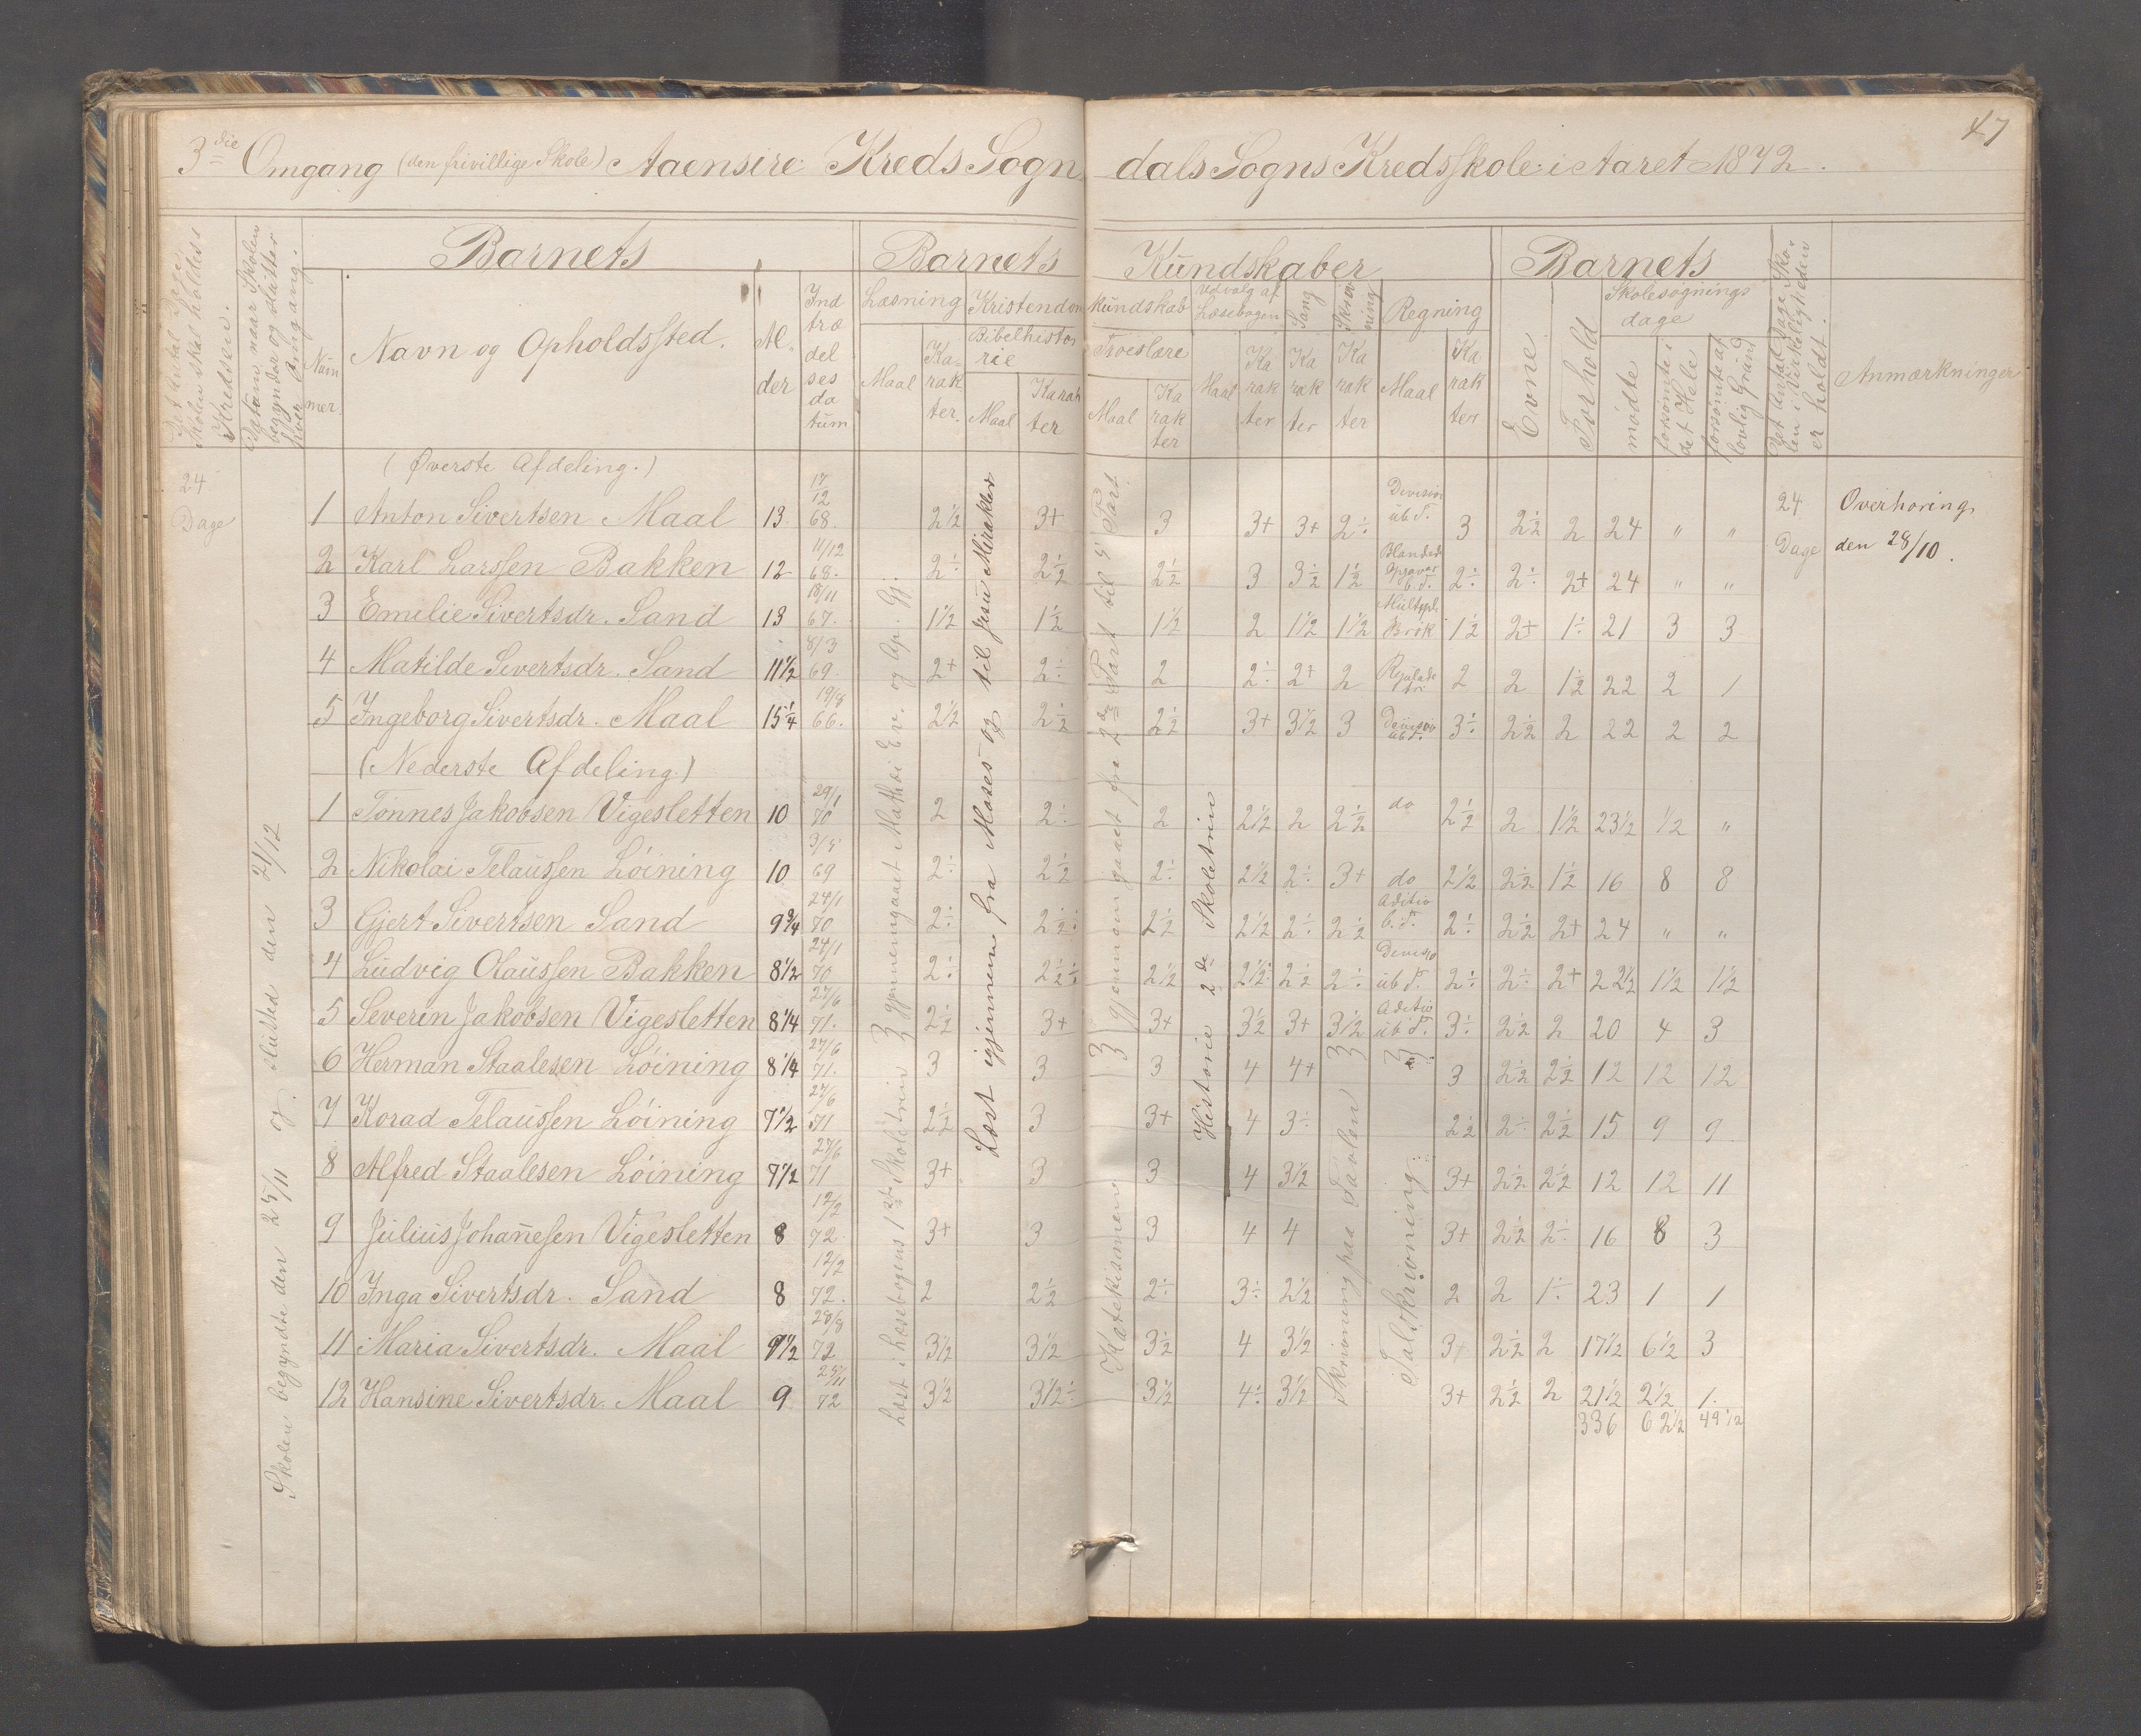 47
3die Omgang (den frivillige Skole) Aaensire Kreds Sogndals Sogns Kredsskole i Aaret 1872.
Det Antal Dage Skolen skal holdes i Kredsen.
Datum naar Skolen begynder og slutter hver Omgang.
Barnets
Barnets Kundskaber
Barnets
Det Antal Dage Skolen i Virkeligheden er holdt.
Anmærkninger
Nummer
Navn og Opholdssted.
Alder
Indtrædelsesdatum
Læsning
Kristendomskundskab
Udvalg af Læsebogen
Sang
Skrivning
Regning
Evne
Forhold
Skolesøgningsdage
Maal
Karakter.
Bibelhistorie
Maal
Karakter
Troeslære
Maal
Karakter
Maal
Karakter
Karakter
Karakter
Maal
Karakter
mødte
forsømte i det Hele
forsømte af lovlig Grund
24 Dage
Skolen begyndte den 25/11 og slutted den 21/12
Læst i Læsebogens 1ste Skoletrin
gjennemgaaet Mathæi Ev. og Ap. Gj.
Læst igjennem fra Moses og til Jesu Mirakler
Katekismen
gjennemgaaet fra 2de Part til 5 Part
Historie 2de Skoletrin
Skrivning paa Tavlen
Talskrivning
(Øverste Afdeling.)
1 Anton Sivertsen Maal 13 17/12 68. 2½ 3+ 3 3+ 3+ 2÷ Division ub T. 3 2½ 2 24 " " 24 Dage Overhøring den 28/10.
2 Karl Larssen Bakken 12 11/12 68. 2÷ 2½ 2½ 3 3½ 1½ Blandede Opgaver b. T. 2÷ 2÷ 2+ 24 " "
3 Emilie Sivertsdr. Sand 13 18/11 67. 1½ 1½ 1½ 2 1½ 1½ Multipl. Brøk 1½ 2+ 1÷ 21 3 3
4 Matilde Sivertsdr. Sand 11½ 8/3 69. 2+ 2÷ 2 2÷ 2+ 2 2 2 1½ 22 2 1
5 Ingeborg Sivertsdr. Maal 15¼ 19/8 66. 2½ 2½ 2½ 3+ 3½ 3 Division ub T. 3÷ 2½ 2 22 2 2
(Nederste Afdeling)
1 Tønnes Jakobsen Vigesletten 10 29/1 70 2 2÷ 2 2½ 2 2½ do 2½ 2 1½ 23½ ½ "
2 Nikolai Telaussen Løining 10 3/5 69 2÷ 2½ 2÷ 2½ 2÷ 3+ do 2½ 2½ 1½ 16 8 8
3 Gjert Sivertsen Sand 9¾ 24/1 70 2÷ 2½÷ 2½ 2½ 2÷ 2½ Aditio b. T. 2÷ 2½ 2+ 24 " "
4 Ludvig Olaussen Bakken 8½ 24/1 70 2÷ 2½÷ 2½ 2½ 2½ 2÷ Divisio ub T. 2÷ 2÷ 2+ 22½ 1½ 1½
5 Severin Jakobsen Vigesletten 8¼ 27/6 71. 2½ 3+ 3+ 3½ 3+ 3½ Aditio ub T. 3÷ 2½ 2 20 4 3
6 Herman Staalesen Løining 8¼ 27/6 71. 3 3 3 4 4+ 3 2½ 2½ 12 12 12
7 Korad Telaussen Løining 7½ 27/6 71 2½ 3 3+ 4 3÷ 2½ 2÷ 2½ 15 9 9
8 Alfred Staalesen Løining 7½ 27/6 71 3+ 3 3 4 3½ 3+ 2½ 2½ 12 12 11
9 Julius Johannesen Vigesletten 8 12/2 72. 3+ 3 3 4 4 3+ 2½ 2÷ 16 8 3
10 Inga Sivertsdr. Sand 8 12/2 72. 2 2½ 2÷ 3÷ 2½ 2 2 1÷ 23 1 1
11 Maria Sivertsdr. Maal 9½ 28/8 72 3½ 3½ 3½ 4 3½ 3+ 2½ 2 17½ 6½ 3
12 Hansine Sivertsdr. Maal 9 25/11 72 3½ 3½÷ 3½ 4÷ 3½ 3+ 2½ 2 21½ 2½ 1.
336 62½ 49½